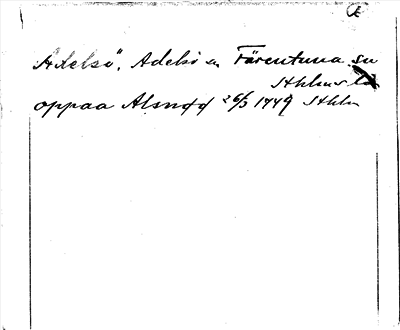 Æ
Adelsö, Adelsö sn Färentuna su
Sthlms lä
oppaa Alsnöö 26/3 1449 Sthlm